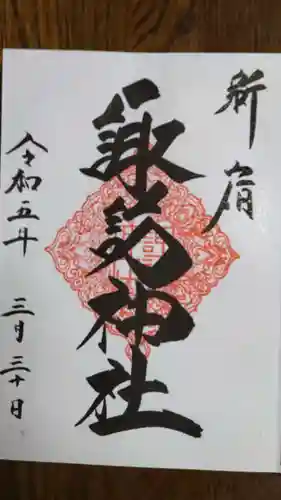 新宿
諏訪神社
令和五年 三月三十日